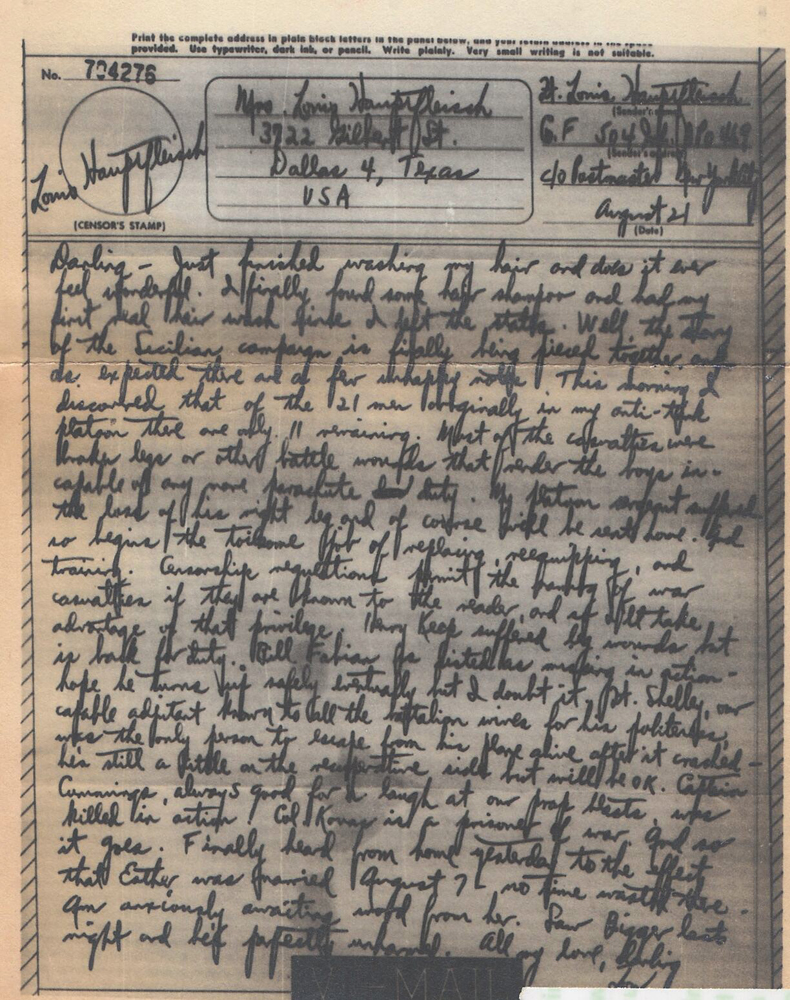 Print the complete address in plain block letters in the panel below, and your return address in the space
provided. Use typewriter, dark ink, or pencil. Write plainly. Very small writing is not suitable.
No. 704276
Mrs. Louis Hauptfleisch
3722 Gilbert St.
Dallas 4, Texas
USA
Lt. Louis Hauptfleisch
(Sender's
G.F. 504 APO 469
(Sender's address)
c/o Postmaster New York City
August 21
(Date)
Louis Hauptfleisch
(CENSOR'S STAMP)
Darling - Just finished washing my hair and does it ever
feel wonderful. I finally found some hair shampoo and had my
first real hair wash since I left the states. Well, the story
of the Sicilian campaign is finally being pieced together and
as expected there are a few unhappy notes. This morning I
discovered that of the 21 men originally in my anti-tank
platoon there are only 11 remaining. Most of the casualties were
broken legs or other battle wounds that render the boys in-
capable of any more parachute duty. My platoon sergeant suffered
the loss of his right leg and of course will be sent home. And
so begins the toilsome job of replacing, reequipping, and
training. Censorship regulations permit the naming of war
casualties if they are known to the reader, and so I'll take
advantage of that privilege. Henry Keep suffered leg wounds but
is back for duty. Bill Fabian is listed as missing in action -
hope he turns up safely eventually but I doubt it. Lt. Shelley, our
capable adjutant known to all the battalion wives for his politeness,
was the only person to escape from his plane alive after it crashed -
he's still a little on the recuperative side but will be OK. Captain
Cummings, always good for a laugh at our prop blasts, was
killed in action. Col Kouns is a prisoner of war. And so
it goes. Finally heard from home yesterday to the effect
that Esther was married August 7 - no time wasted there.
Am anxiously awaiting word from her. Saw Bigger last
night and he's perfectly unharmed. All my love, darling
Lou
V-MAIL